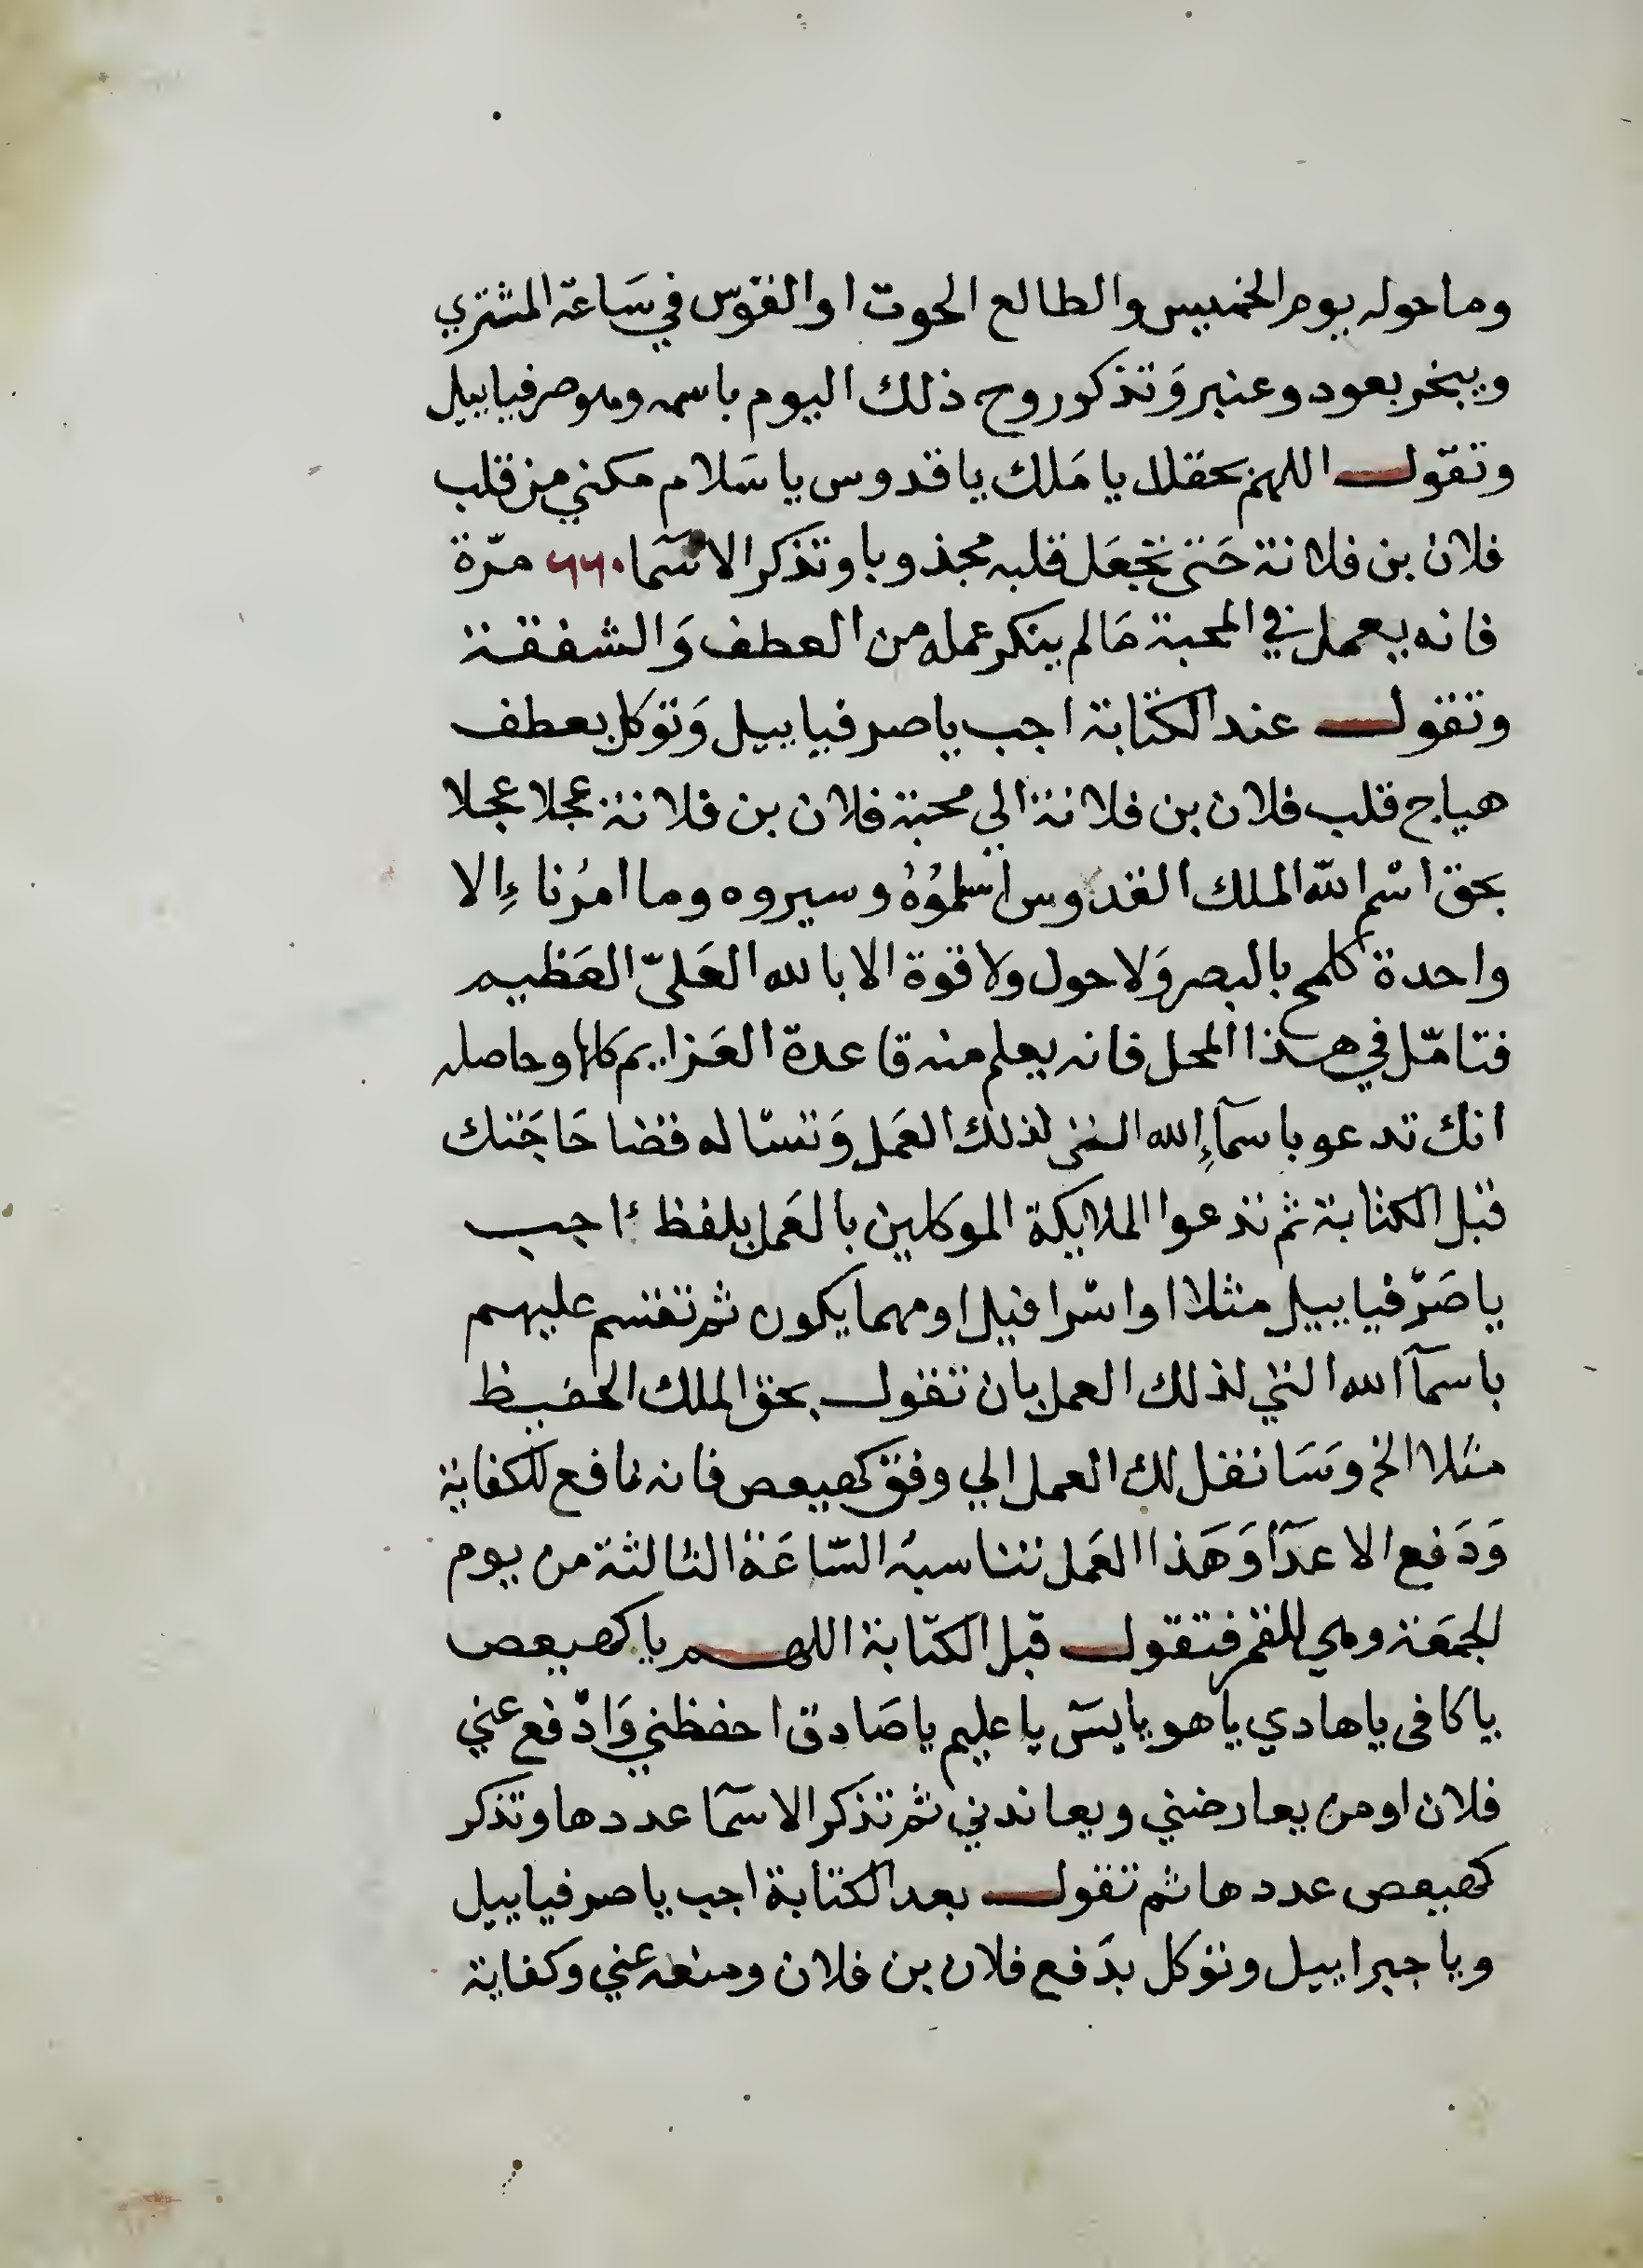 وما حوله يوم الخميس والطالع الحوت او القوس في ساعة المشتري
ويبخر بعود وعنبر وَتذكر روح ذلك اليوم باسمه وهو صرفيابيل
وتقول اللهم بحقك يا مَلك يا قدوس يا سَلام مكني من قلب
فلان بن فلانة حَتى تجعَل قلبه مجذوبا وتذكر الاسمَا مرّة
فانه يعمل في المحبة مَالم ينكر عمله من العطف وَالشفقة
وتقول عند الكتابة اجب يا صرفياييل وَتوكل بعطف
هياج قلب فلان بن فلانة الي محبة فلان بن فلانة عجلا عجلا
بحق اسم الله الملك القدوس اسلموُهُ وسيروه وما امرُنا إِلا
واحدة كلمح بالبصر وَلا حول ولا قوة الا بالله العَليّ العَظيم
فتامّل في هذا المحل فانه يعلم منه قاعدة العَزايم كلها وحاصله
انك تدعو باسمآءِ الله التي لذلك العَمل وَتسأله قضا حَاجَتك
قبل الكتابة ثم تدعوا الملايكة الموكلين بالعَمل بلفظ اجب
يا صَرْفياييل مثلا او اسْرافيل او مهما يكون ثم تقسم عليهم
باسمآ الله التي لذلك العمل بان تقول بحق الملك الحفيظ
مثلا الخ وَسَانقل لك العمل الي وفق كهيعص فانه نافع للكفاية
وَدَفع الاعدَآ وَهَذا العَمل تناسبهُ السّاعَة الثالثة من يوم
الجمعَة وهي للقمر فتقول قبل الكتابة اللهم يا كهيعص
يا كافى يا هادي يا هو يا يسَ يا عليم يا صَادق احفظني وَادْفع عني
فلان او من يعارضني ويعاندني ثم تذكر الاسمَآ عددها وتذكر
كهيعص عددها ثم تقول بعد الكتابة اجب يا صرفياييل
ويا جبراييل وتوكل بدَفع فلان بن فلان ومنعه عني وكفاية